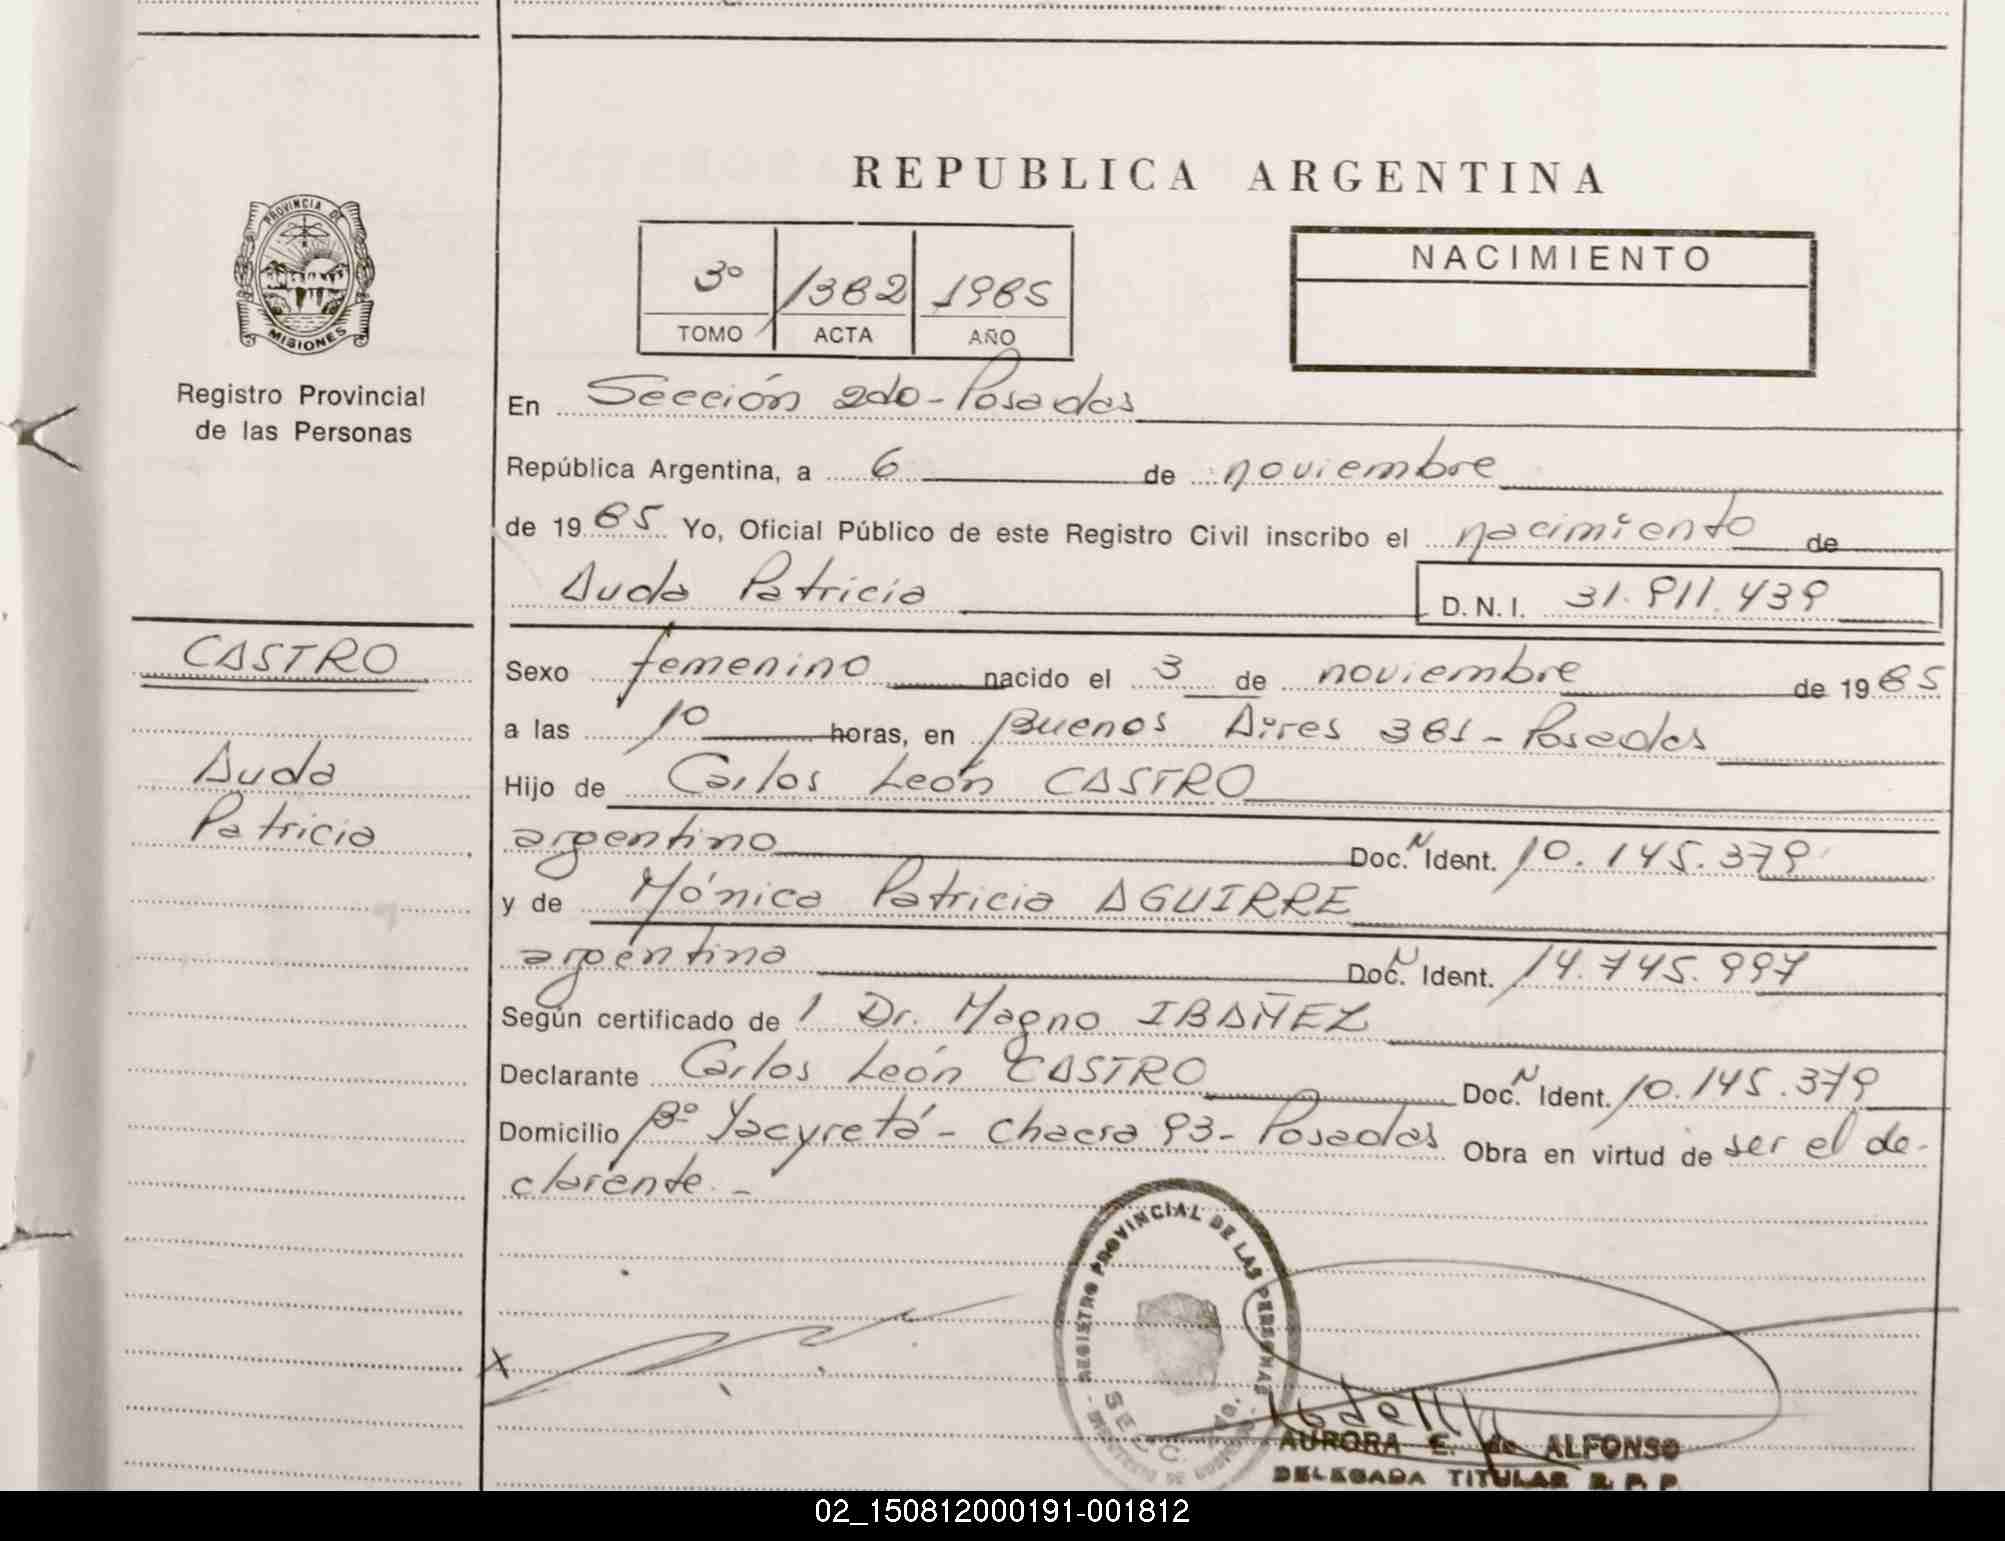 REPUBLICA ARGENTINA
PROVINCIA DE
MISIONES
Registro Provincial
de las Personas
3º 1382 1985
TOMO ACTA AÑO
NACIMIENTO
En Sección 2do - Posadas
República Argentina, a 6 de noviembre
de 1985 Yo, Oficial Público de este Registro Civil inscribo el nacimiento de
Auda Patricia D.N.I. 31.911.439
CASTRO
Auda
Patricia
Sexo femenino nacido el 3 de noviembre de 1985
a las 10 horas, en Buenos Aires 381 - Posadas
Hijo de Carlos León CASTRO
argentino Doc. N Ident. 10.145.379
y de Mónica Patricia AGUIRRE
argentina Doc. N Ident. 14.745.997
Según certificado de 1 Dr. Magno IBAÑEZ
Declarante Carlos León CASTRO Doc. N Ident. 10.145.379
Domicilio Bº Yacyretá - Chacra 93 - Posadas Obra en virtud de ser el de-
clarente. -
REGISTRO PROVINCIAL DE LAS PERSONAS
SECC.
X
AURORA E. de ALFONSO
DELEGADA TITULAR R. P. P.
02_150812000191-001812